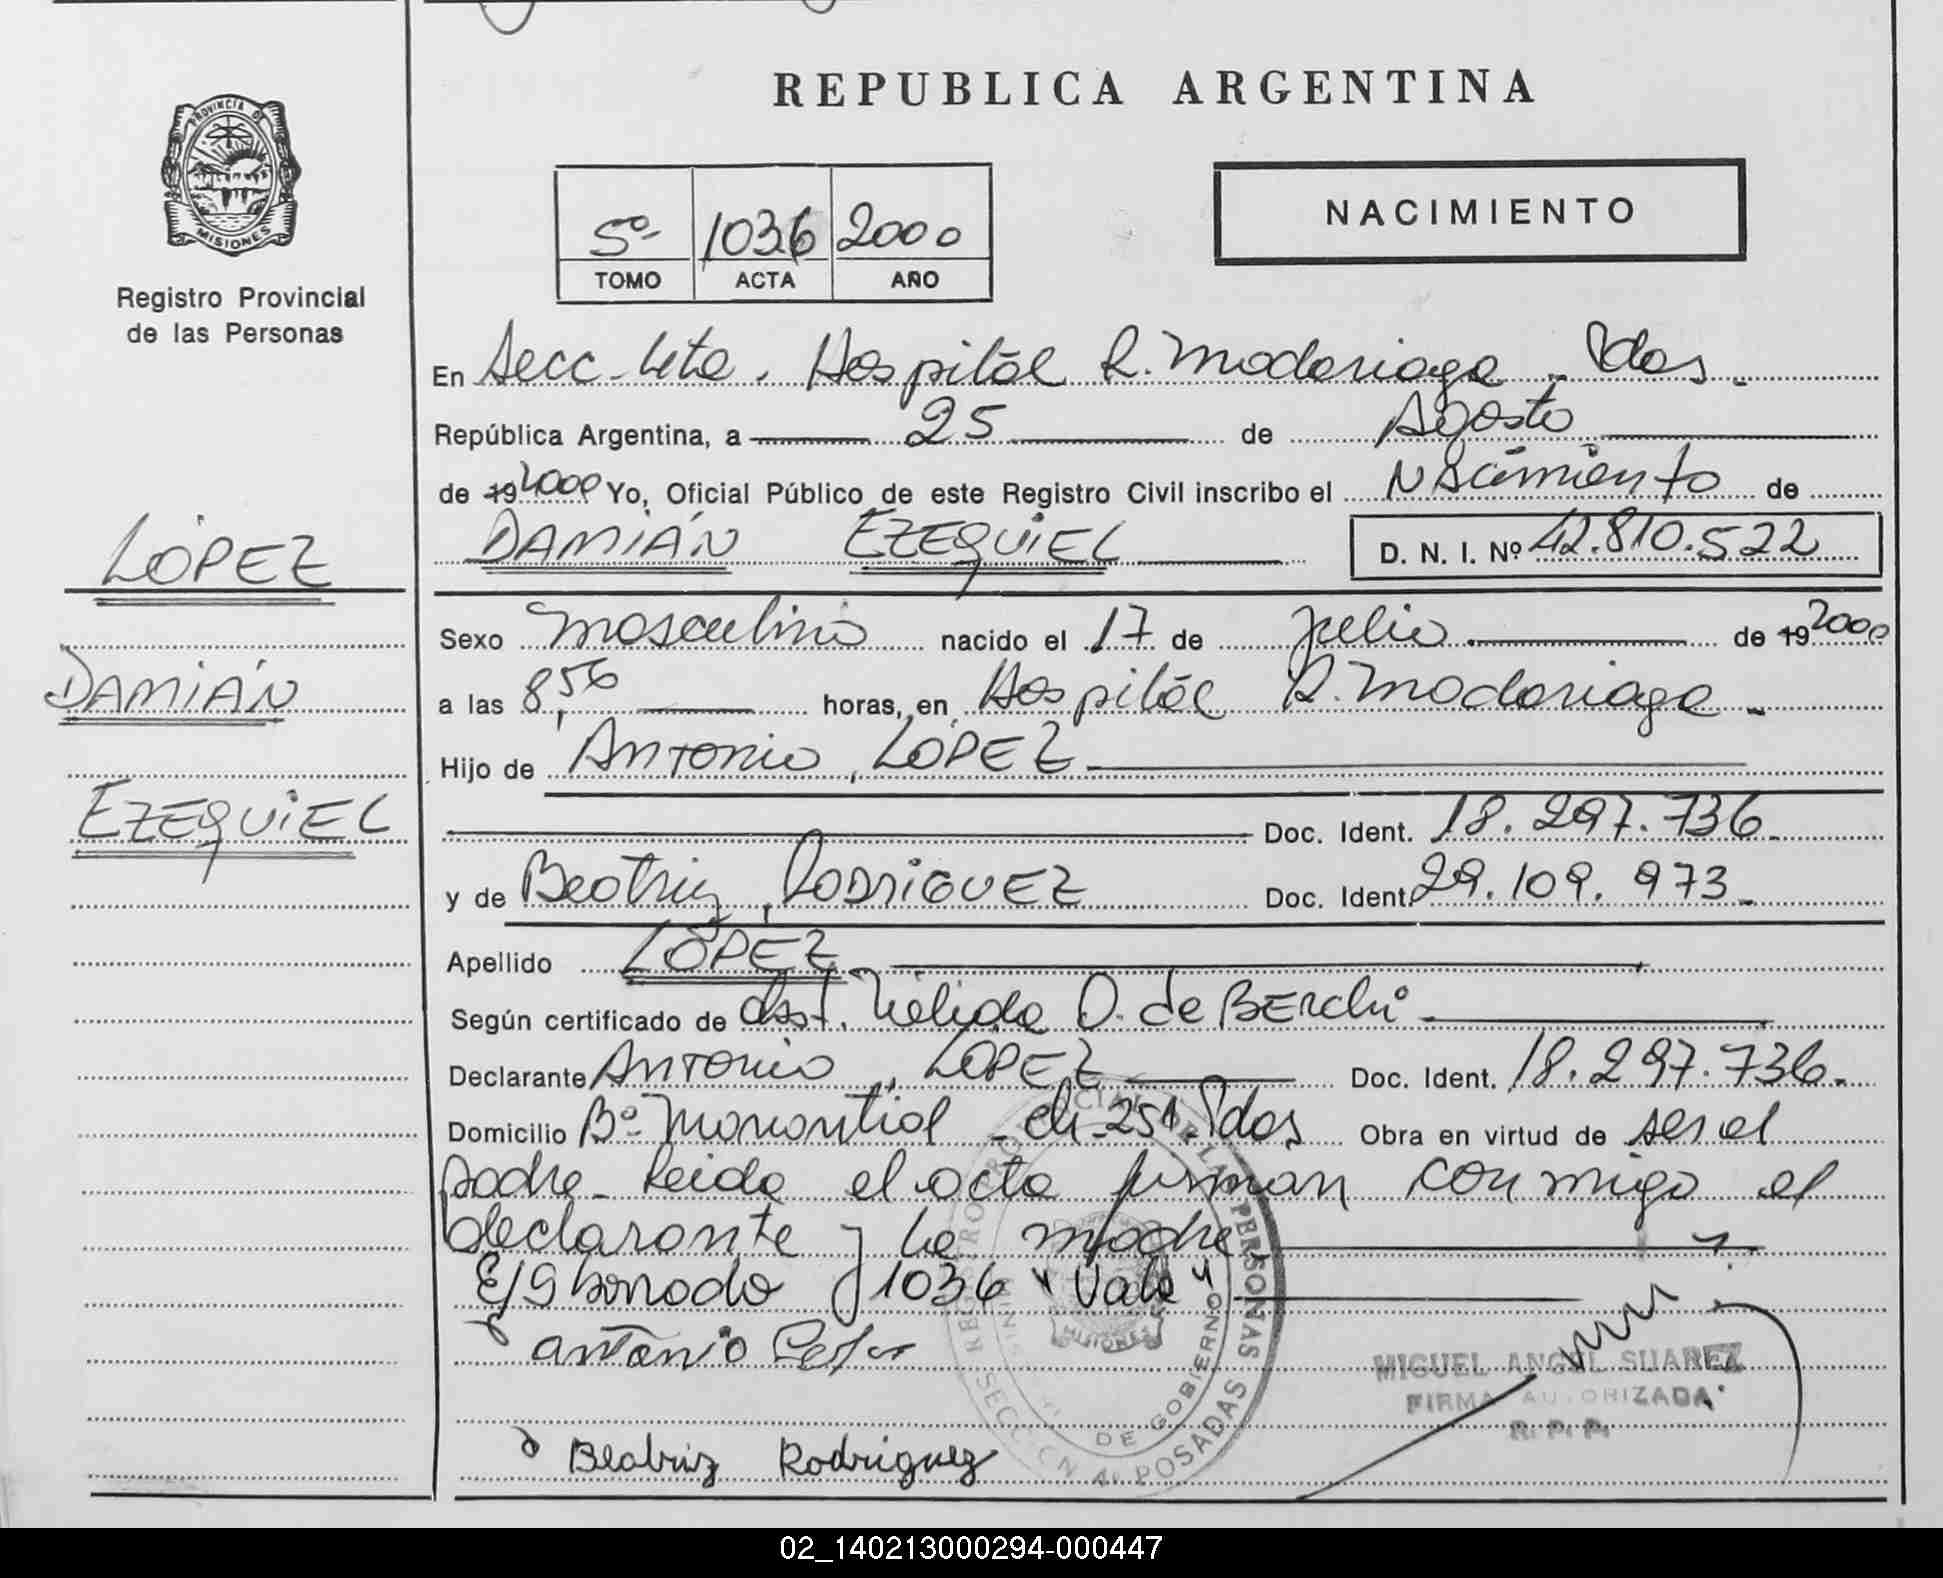 REPUBLICA ARGENTINA
PROVINCIA DE
MISIONES
Registro Provincial
de las Personas
NACIMIENTO
5º 1036 2000
TOMO ACTA AÑO
En Secc. 4ta. Hospital R. Madariaga - Pdas.
República Argentina, a 25 de Agosto
de 19 2000 Yo, Oficial Público de este Registro Civil inscribo el Nacimiento de
DAMIÁN EZEQUIEL D. N. I. Nº 42.810.522
LÓPEZ
DAMIÁN
EZEQUIEL
Sexo masculino nacido el 17 de julio de 19 2000
a las 8,56 horas, en Hospital R. Madariaga -
Hijo de Antonio, LÓPEZ
Doc. Ident. 18.297.736
y de Beatriz, RODRIGUEZ Doc. Ident. 29.109.973
Apellido LÓPEZ
Según certificado de Obst. Nélida O. de Berchi
Declarante Antonio, LÓPEZ Doc. Ident. 18.297.736.
Domicilio Bº Manantial - ch. 251. Pdas Obra en virtud de ser el
padre. Leida el acta firman conmigo el
declarante y la madre
E/S borrado 1036 "Vale"
Antonio
MIGUEL ANGEL SUAREZ
FIRMA AUTORIZADA
R. P. P.
Beatriz Rodriguez
DE GOBIERNO
MISIONES
POSADAS
02_140213000294-000447